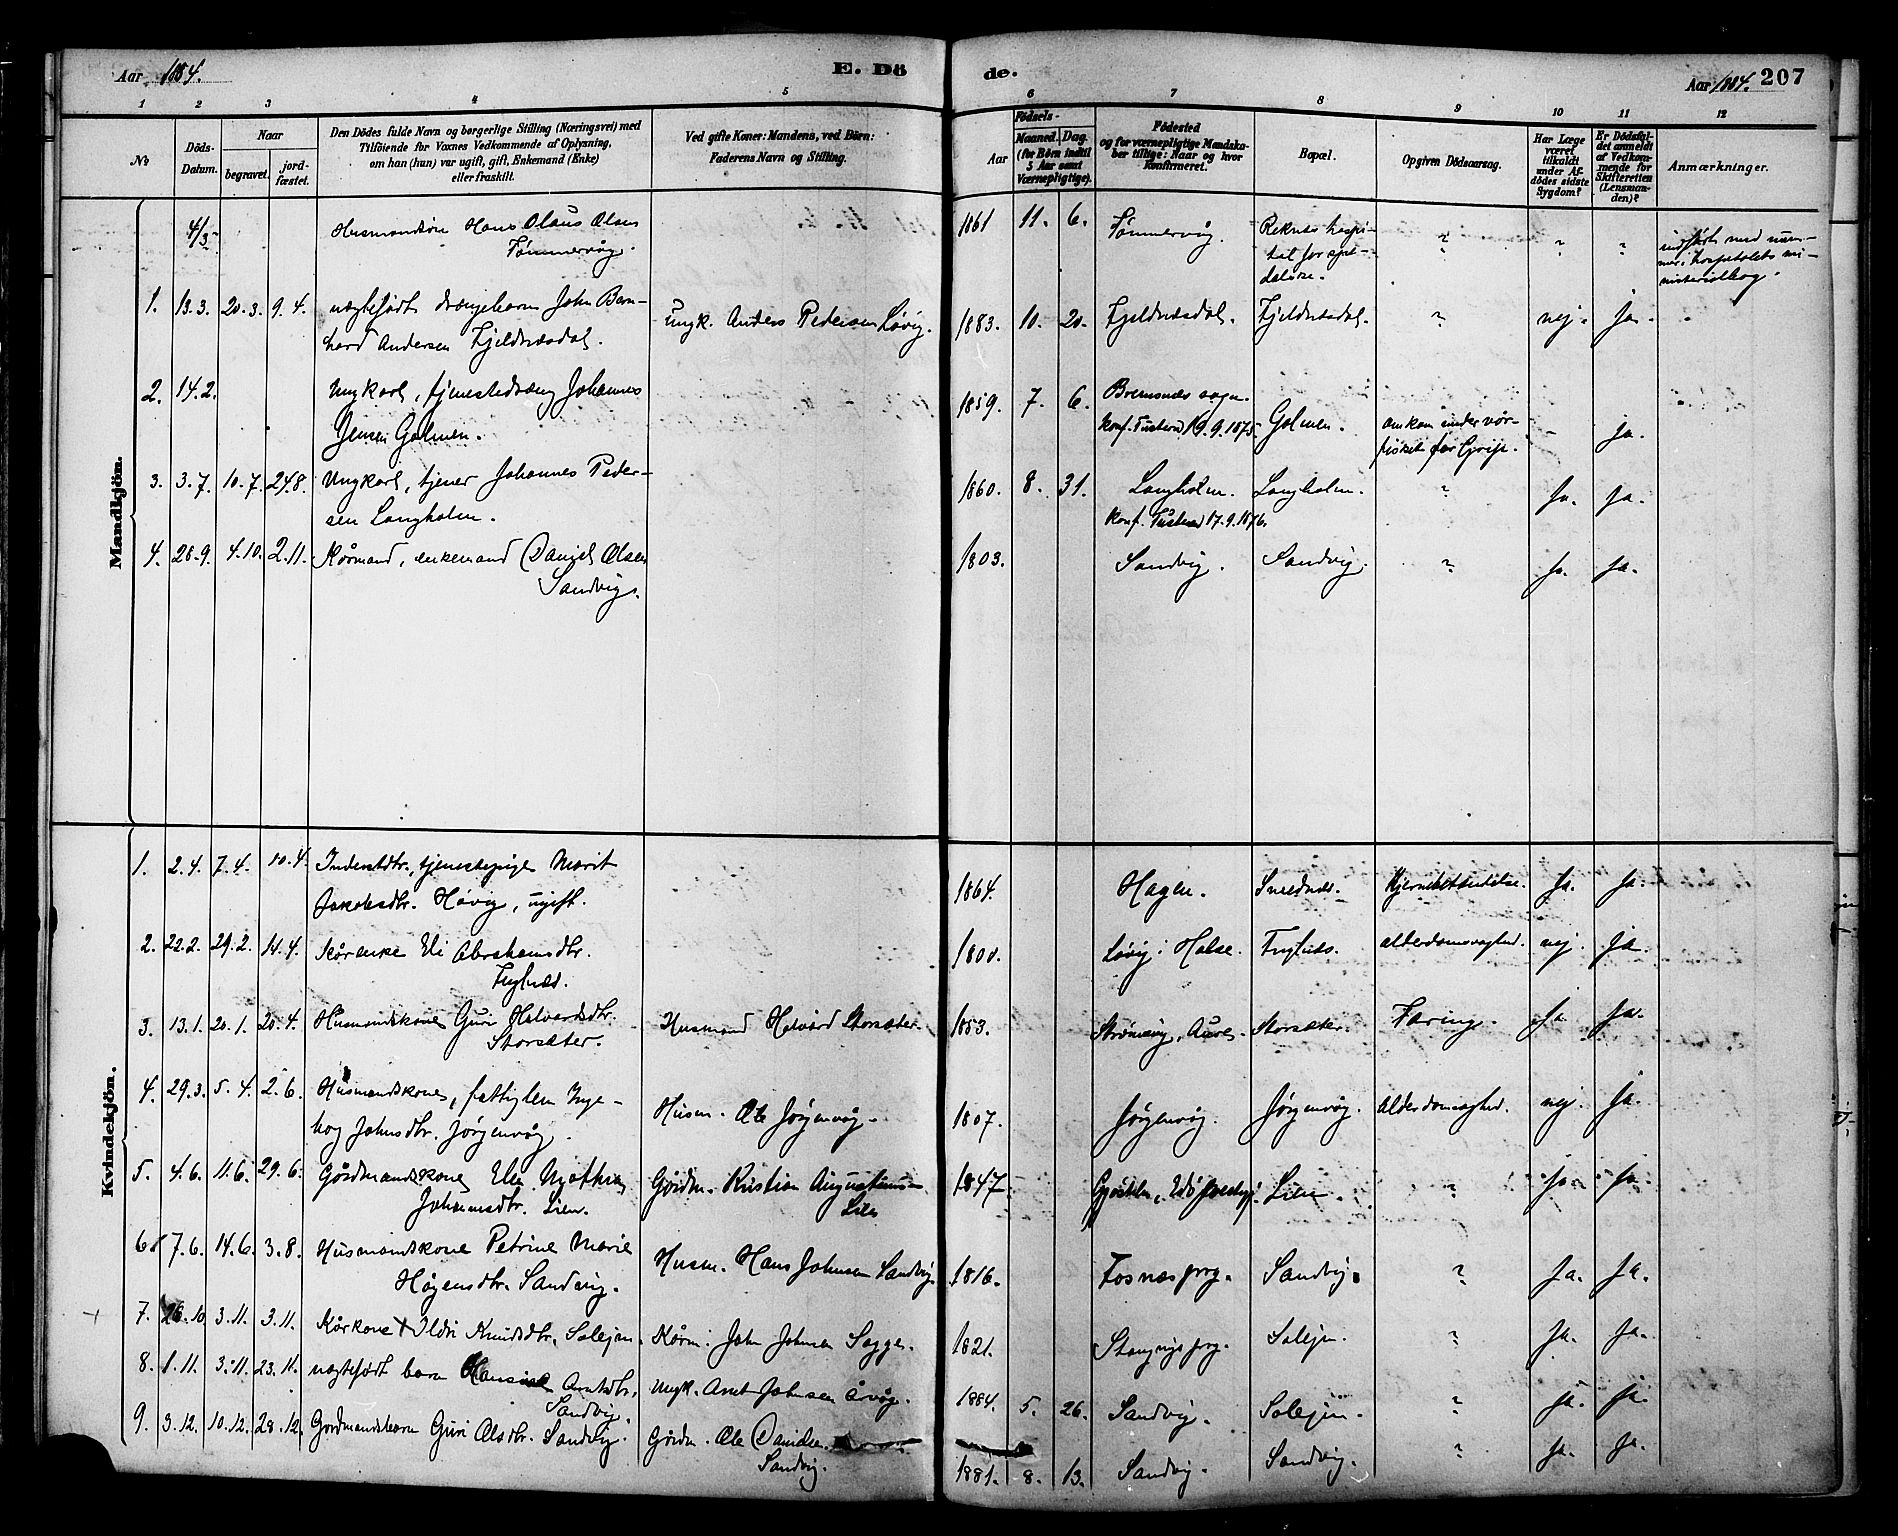 Aar 1884.
E. Dö
de.
Aar 1884. 207
1 2 3 4 5 6 7 8 9 10 11 12
No
Döds-
Datum.
Naar
begravet.
jord-
fæstet.
Den Dödes fulde Navn og borgerlige Stilling (Næringsvei) med
Tilföiende for Voxnes Vedkommende af Oplysning,
om han (hun) var ugift, gift, Enkemand (Enke)
eller fraskilt.
Ved gifte Koner: Mandens, ved Börn:
Faderens Navn og Stilling.
Födsels-
Aar
Maaned. Dag.
(for Börn indtil
5 Aar samt
Værnepligtige).
Födested
og for værnepligtige Mandska-
ber tillige: Naar og hvor
konfirmeret.
Bopæl.
Opgiven Dödsaarsag.
Har Læge
været
tilkaldt
under Af-
dödes sidste
Sygdom?
Er Dödsfal-
det anmeldt
af Vedkom-
mende for
Skifteretten
(Lensman-
den)?
Anmærkninger.
Mandkjön.
4/3 Husmandsøn Hans Olaus Olsen 1861 11. 6. Tømmervåg. Reknes hospi- ? ? ? indført med num-
Tømmervåg. tal for spe- mer i hospitalets mi-
dalske. nisterialbog.
1. 13.3. 20.3. 9.4. uægtefødt drengebarn John Bern- Ungk. Anders Pedersen Løvig. 1883. 10. 20. Fjeldnesdal. Fjeldnesdal. ? nej. ja.
hard Andersen Fjeldnesdal.
2. 14.2. Ungkarl, tjenestedreng Johannes 1859. 7. 6. Bremsnes sogn.
Jensen Golmen. konf. Tustern 19.9.1875. Golmen. omkom under vår- - ja.
fisket for Grip.
3. 3.7. 10.7. 24.8. Ungkarl, tjener Johannes Peder- 1860. 8. 31. Langholm. Langholm. ? ja. ja.
sen Langholm. konf. Tustern 17.9.1876.
4. 28.9. 4.10. 2.11. Kårmand, enkemand Daniel Olsen 1803. Sandvig. Sandvig. ? ja. ja.
Sandvig.
Kvindekjön.
1. 2.4. 7.4. 10.4. Inderstdtr., tjenestepige Marit 1864. Hagen. Smednes. Hjernebetændelse. ja. ja.
Jakobsdtr. Høvig, ugift.
2. 22.2. 29.2. 14.4. Kårenke Eli Abrahamsdtr. 1800. Løvig i Halse. Fuglnes. alderdomsvaghed. nej. ja.
Fuglnes.
3. 13.1. 20.1. 20.4. Husmandskone Guri Halvardsdtr. Husmand Halvard Storsæter. 1853. Strømsvig, Aure. Storsæter. Tæring. ja ja.
Storsæter.
4. 29.3. 5.4. 2.6. Husmandskone, fattiglem Inge- Husm. Ole Jørgenvåg. 1807. Jørgenvåg. Jørgenvåg. Alderdomsvaghed. nej. ja.
bog Johnsdtr. Jørgenvåg.
5. 4.6. 11.6. 29.6. Gårdmandskone Elen Mathea Gårdm. Kristian Augustinus- 1847. Edø Lien. ? ja. ja.
Johannesdtr. Lien. Lien
6. 7.6. 14.6. 3.8. Husmandskone Petrine Marie Husm. Hans Johnsen Sandvig. 1816. Fosnæs prg. Sandvig. ? ja. ja.
Sandvig.
7. 26.10 3.11. 3.11. Kårkone Ildri Knudsdtr. Solejen. Kårm. John Johnsen Sagge. 1821. Stangvigs prg. Solejen. ? ja. ja.
8. 1.11. 3.11. 23.11. uægtefødt barn Arntsdtr. Ungk. Arnt Johnsen Årvåg. 1884. 5. 26. Sandvig. Solejen. ? ja. ja.
Sandvig.
9. 3.12. 10.12. 28.12. Gårdmandsbarn Guri Olsdtr. Sandvig. Gårdm. Ole Danielsen
Sandvig. 1881. 8. 13. Sandvig. Sandvig. ? ja. ja.